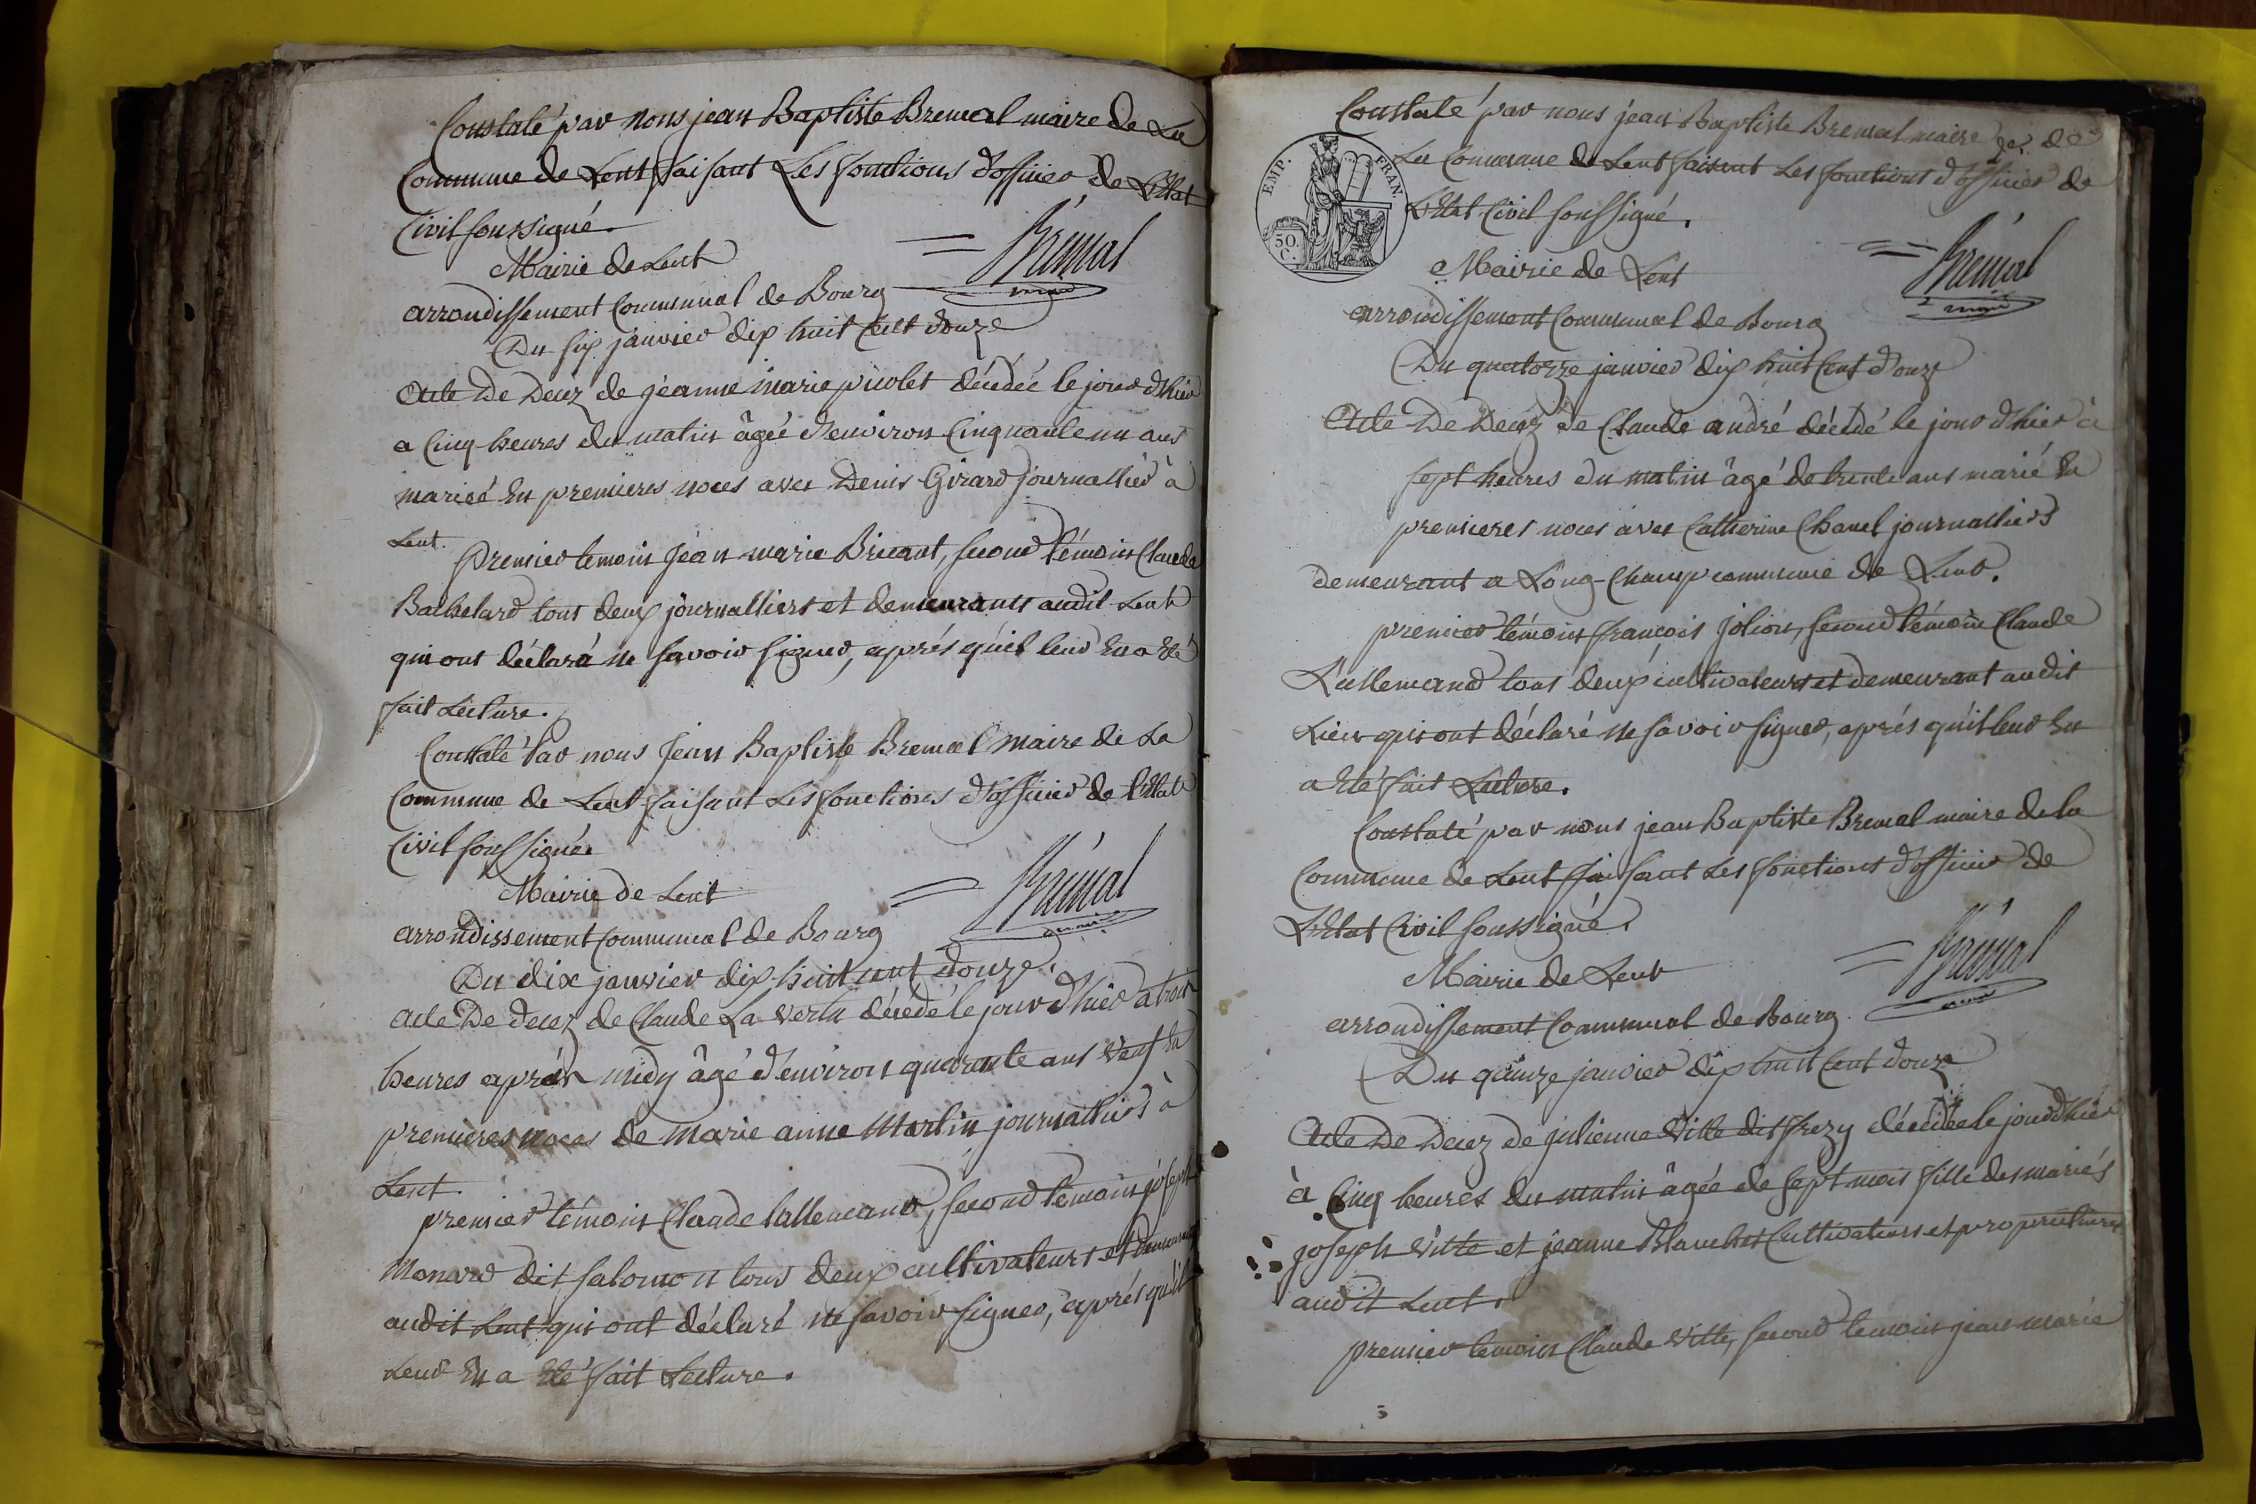 Constaté par nous jean Baptiste Bremal maire de La
Commune de Lent faisant Les fonctions d'officier de L'Etat
Civil soussigné.
Brémal
maire
Mairie de Lent
arrondissement Communal de Bourg
Du six janvier dix huit cent douze
Acte De Decez de jeanne marie picolet décédée le jour d'hier
a Cinq heures du matin âgée d'environ Cinquante un ans
mariéé En premieres noces avec Denis Girard journallier à
Lent.
Premier temoin Jean marie Bricant, second témoin Claude
Bachelard tous deux journalliers et demeurants audit Lent
qui ont déclaré ne savoir signer, après qu'il leur En a Eté
fait Lecture.
Constaté Par nous Jean Baptiste Bremal Maire de La
Commune de Lent faisant Les fonctions d'officier de l'Etat
Civil soussigné.
Brémal
maire
Mairie de Lent
arrondissement Communal de Bourg
Du dix janvier dix huit cent douze.
Acte De decez de Claude La vertu décédé le jour d'hier a trois
heures après midy âgé d'environ quarante ans Veuf En
premieres noces de Marie anne Martin journallier à
Lent.
premier témoin Claude lallemand, second temoin joseph
Monard dit salomon tous deux cultivateurs et demeurants
audit Lent qui ont déclaré ne savoir signer, après qu'il
Leur En a Eté fait Lecture.
Constaté par nous jean Baptiste Bremal maire de
La Commune de Lent faisant Les fonctions d'officier de
L'Etat Civil soussigné.
EMP. FRAN.
50.
C.
Brémal
maire
Mairie de Lent
arrondissement Communal de Bourg
Du quatorze janvier dix huit Cent douze
Acte De Decez de Claude andré décédé le jour d'hier à
sept heures du matin âgé de trente ans marié En
premieres noces avec Catherine Chanel journalliers
demeurant a Long-Champ commune de Lent.
premier témoin françois Jolion, second témoin Claude
Lallemand tous deux cultivateurs et demeurant audit
Lieu qui ont déclaré ne savoir signer, après qu'il leur En
a Eté fait Lecture.
Constaté par nous jean Baptiste Bremal maire de la
Commune de Lent faisant Les fonctions d'officier de
L'Etat Civil soussigné.
Brémal
maire
Mairie de Lent
arrondissement Communal de Bourg
Du quinze janvier dix huit Cent douze
Acte De Decez de julienne Vitte dit frezy décédée le jour d'hier
à Cinq heures du matin âgée de sept mois fille des mariés
joseph Vitte et jeanne Blanchet Cultivateurs et propriétaires
audit Lent.
premier temoin Claude Vitte, second temoin jean marie